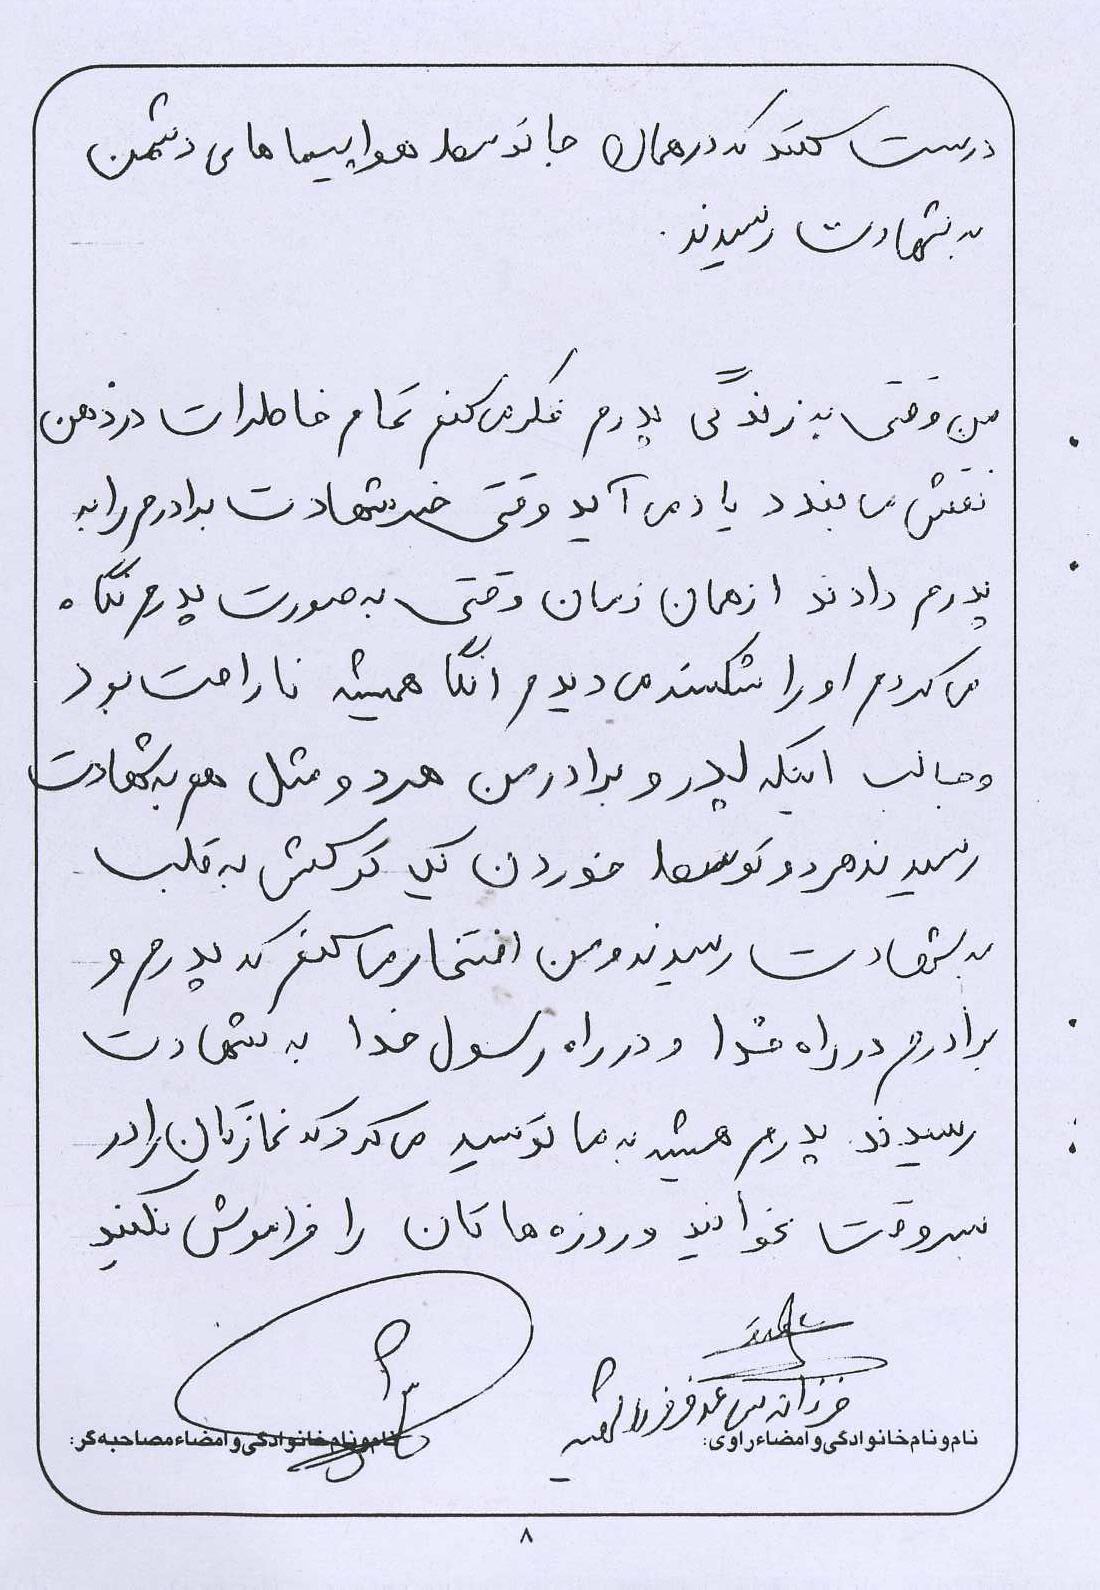 درست کنند که در همان جا توسط هواپیماهای دشمن
به شهادت رسیدند.
من وقتی به زندگی پدرم فکر می‌کنم تمام خاطرات در ذهن
نقش می‌بندد یادم می‌آید وقتی خبر شهادت برادرم را به
پدرم دادند از همان زمان وقتی به صورت پدرم نگاه
می‌کردم او را شکسته می‌دیدم همیشه ناراحت بود
و جالب اینکه پدر و برادر من هر دو مثل هم به شهادت
رسیدند هر دو توسط خوردن یک ترکش به قلب
به شهادت رسیدند و من افتخار می‌کنم که پدرم و
برادرم در راه خدا و در راه رسول خدا به شهادت
رسیدند پدرم همیشه به ما توصیه می‌کرد که نمازتان را در
سر وقت بخوانید و روزه هاتان را فراموش نکنید
فرزانه
نام و نام خانوادگی و امضاء راوی:
نام و نام خانوادگی و امضاء مصاحبه گر:
۸